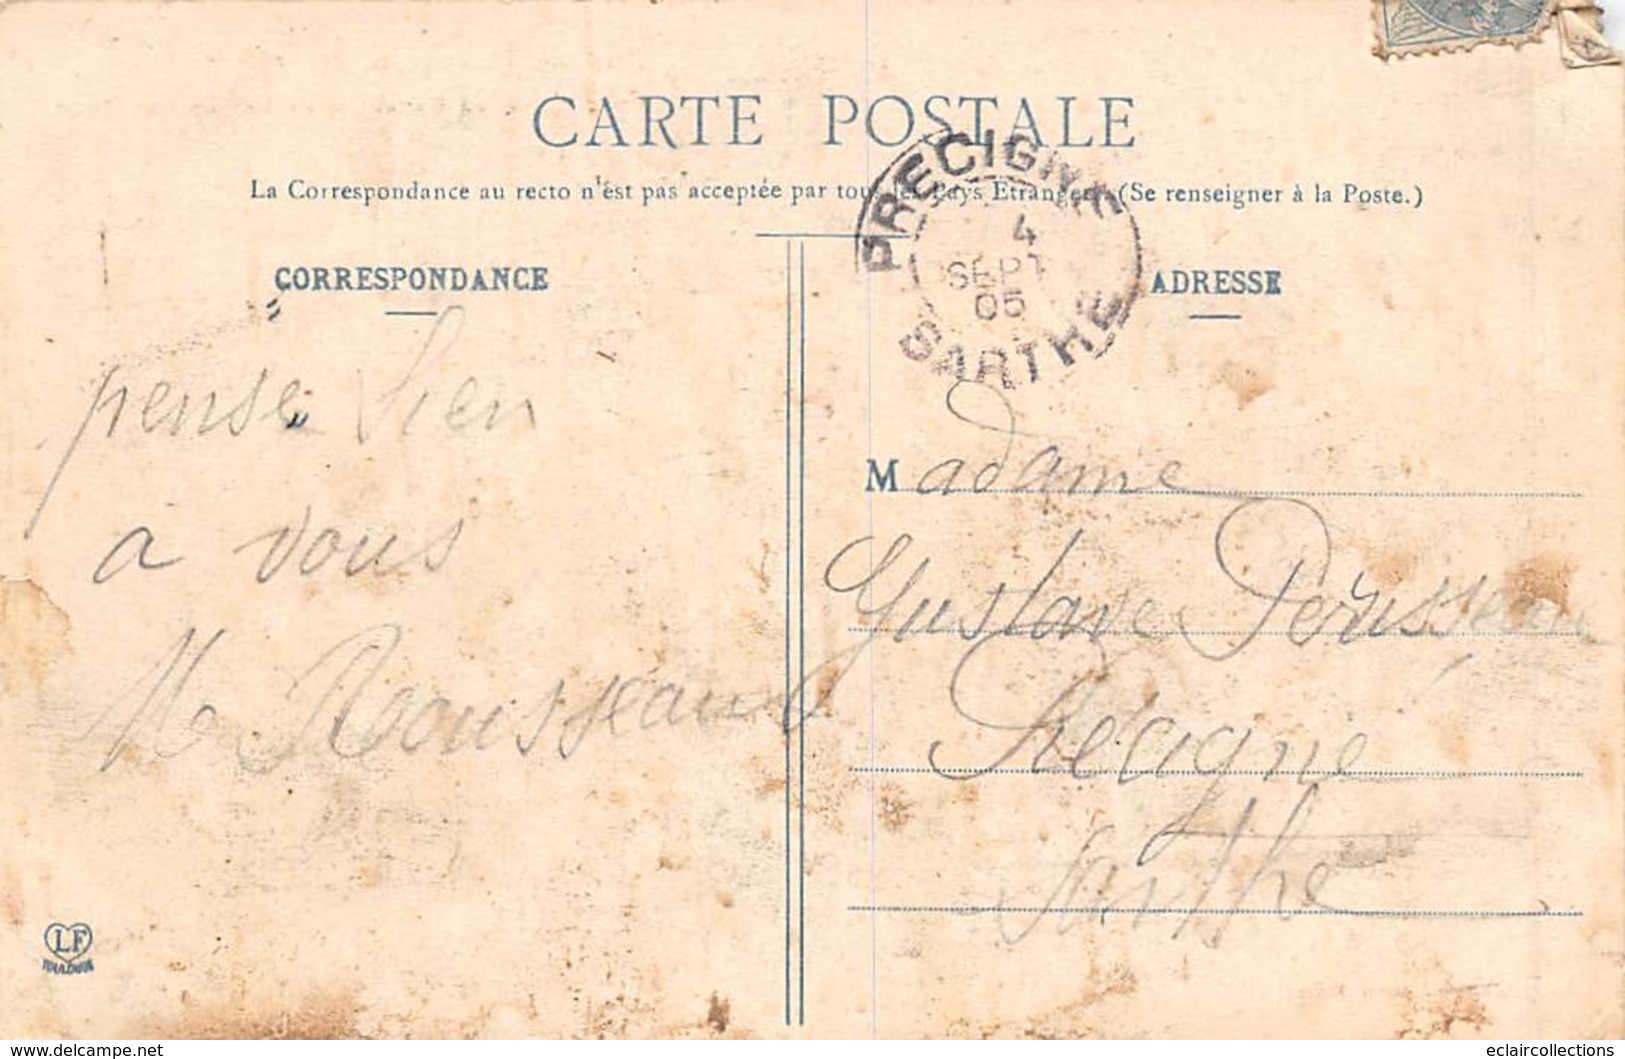 CARTE POSTALE
La Correspondance au recto n'est pas acceptée par tous les Pays Etrangers (Se renseigner à la Poste.)
PRECIGNE
4
SEPT
05
SARTHE
CORRESPONDANCE
pense bien
a vous
M Rousseau
ADRESSE
Madame
Gustave Pérusseau
Précigné
Sarthe
LF
TOULOUSE
www.delcampe.net
eclaircollections